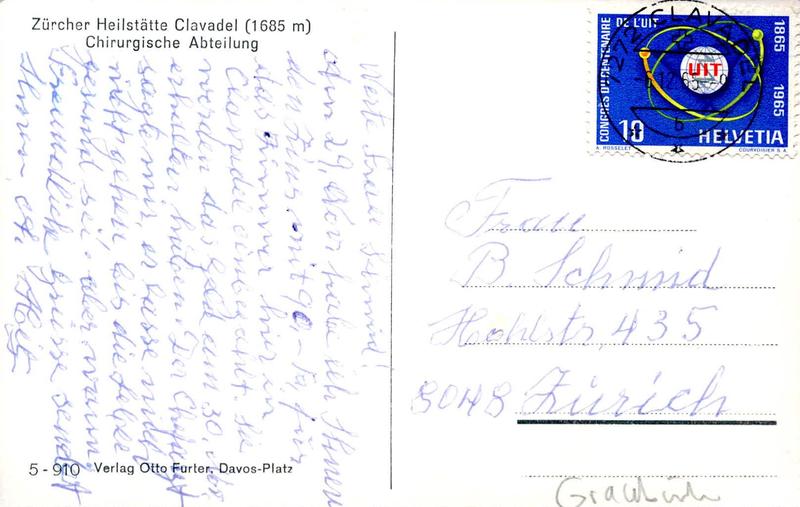 Zürcher Heilstätte Clavadel (1685 m)
Chirurgische Abteilung
Werte Frau Schmid!
Am 29. Nov. habe ich Ihnen
den Zins mit 90.- Fr. für
das Zimmer hier in
Clavadel einbezahlt. Sie
werden das Geld am 30. Nov.
erhalten haben. Der
sagte mir, er lasse mich
nicht gehen bis die
gesund sei. aber wann
Freundliche Grüsse sendet
Ihnen
5-910 Verlag Otto Furter, Davos-Platz
7272 CLAVADEL
12.65.-9
6
CONGRÈS DU CENTENAIRE DE L'UIT
1865 1965
UIT
10 HELVETIA
A. ROSSELET COURVOISIER S.A.
Frau
B. Schmid
Hohlstr. 435
8048 Zürich